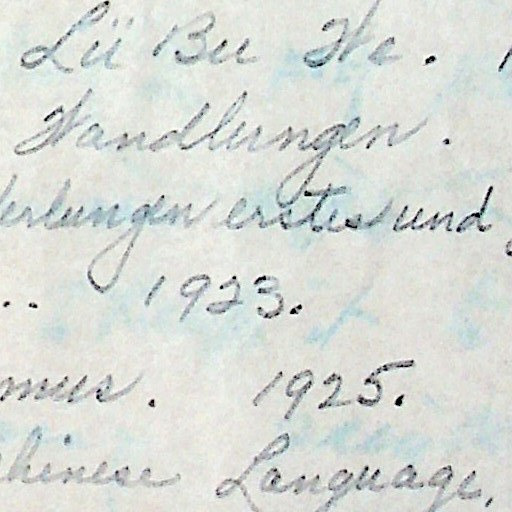 Lü Bu We.
Wandlungen.
erstes und
.. 1923.
mus. 1925.
hinese Language,